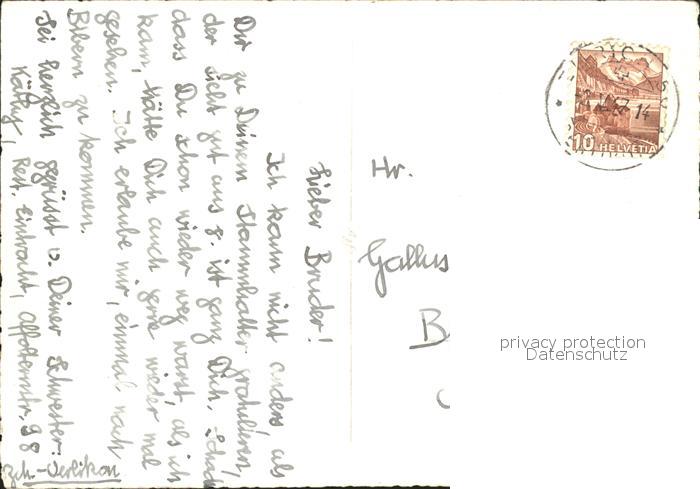 Lieber Bruder!
Ich kann nicht anders, als
Dir zu Deinem Stammhalter gratulieren,
der sieht gut aus & ist ganz Dich. Schade
dass Du schon wieder weg warst, als ich
kam, hätte Dich auch gerne wieder mal
gesehen. Ich erlaube mir, einmal nach
Bibern zu kommen.
Sei herzlich gegrüsst v. Deiner Schwester:
Käthy, Rest. Eintracht, Affolternstr. 98
Zch.-Oerlikon
Hr.
Gallus
B
10 HELVETIA
14
privacy protection
Datenschutz